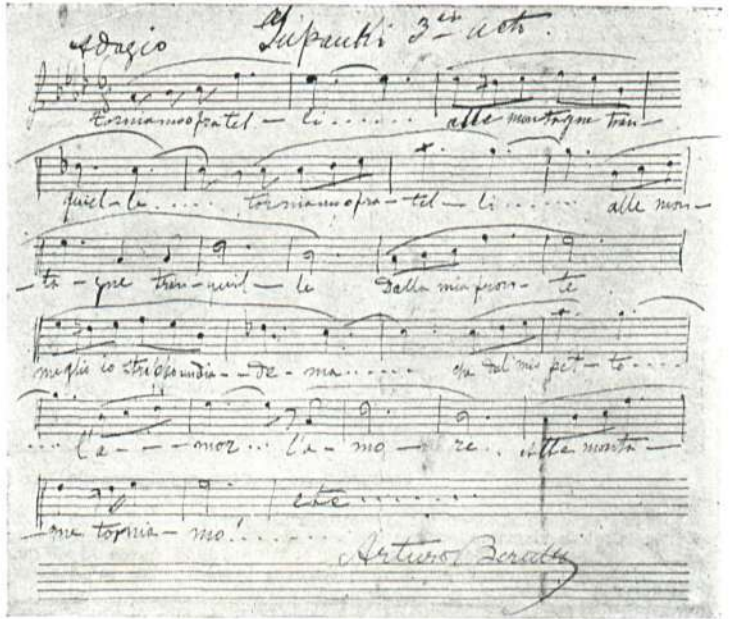 Adagio 3er acto.
torniamo fratel - li . . . . . . alle montagne tran -
quil - le . . . . . torniamo fra - tel - li . . . . . . alle mon -
- ta - gne tran - quil - le dalla mia fron - te
meglio io - - de - ma . . . . . . dal mio pet - to . . . .
. . . l'a - - - mor . . . l'a - mo - re . . alle monta -
- gne tornia - mo!
Arturo